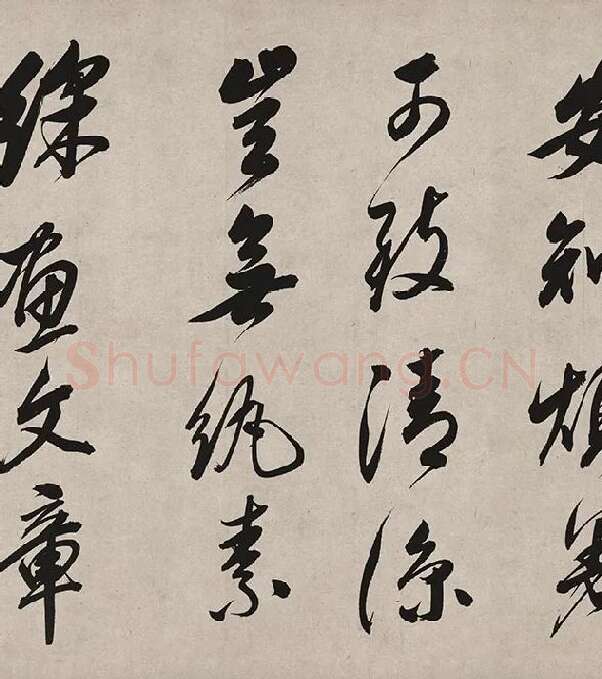 安知煩暑
可致清涼
豈無紈素
綵畫文章
Shufawang.CN